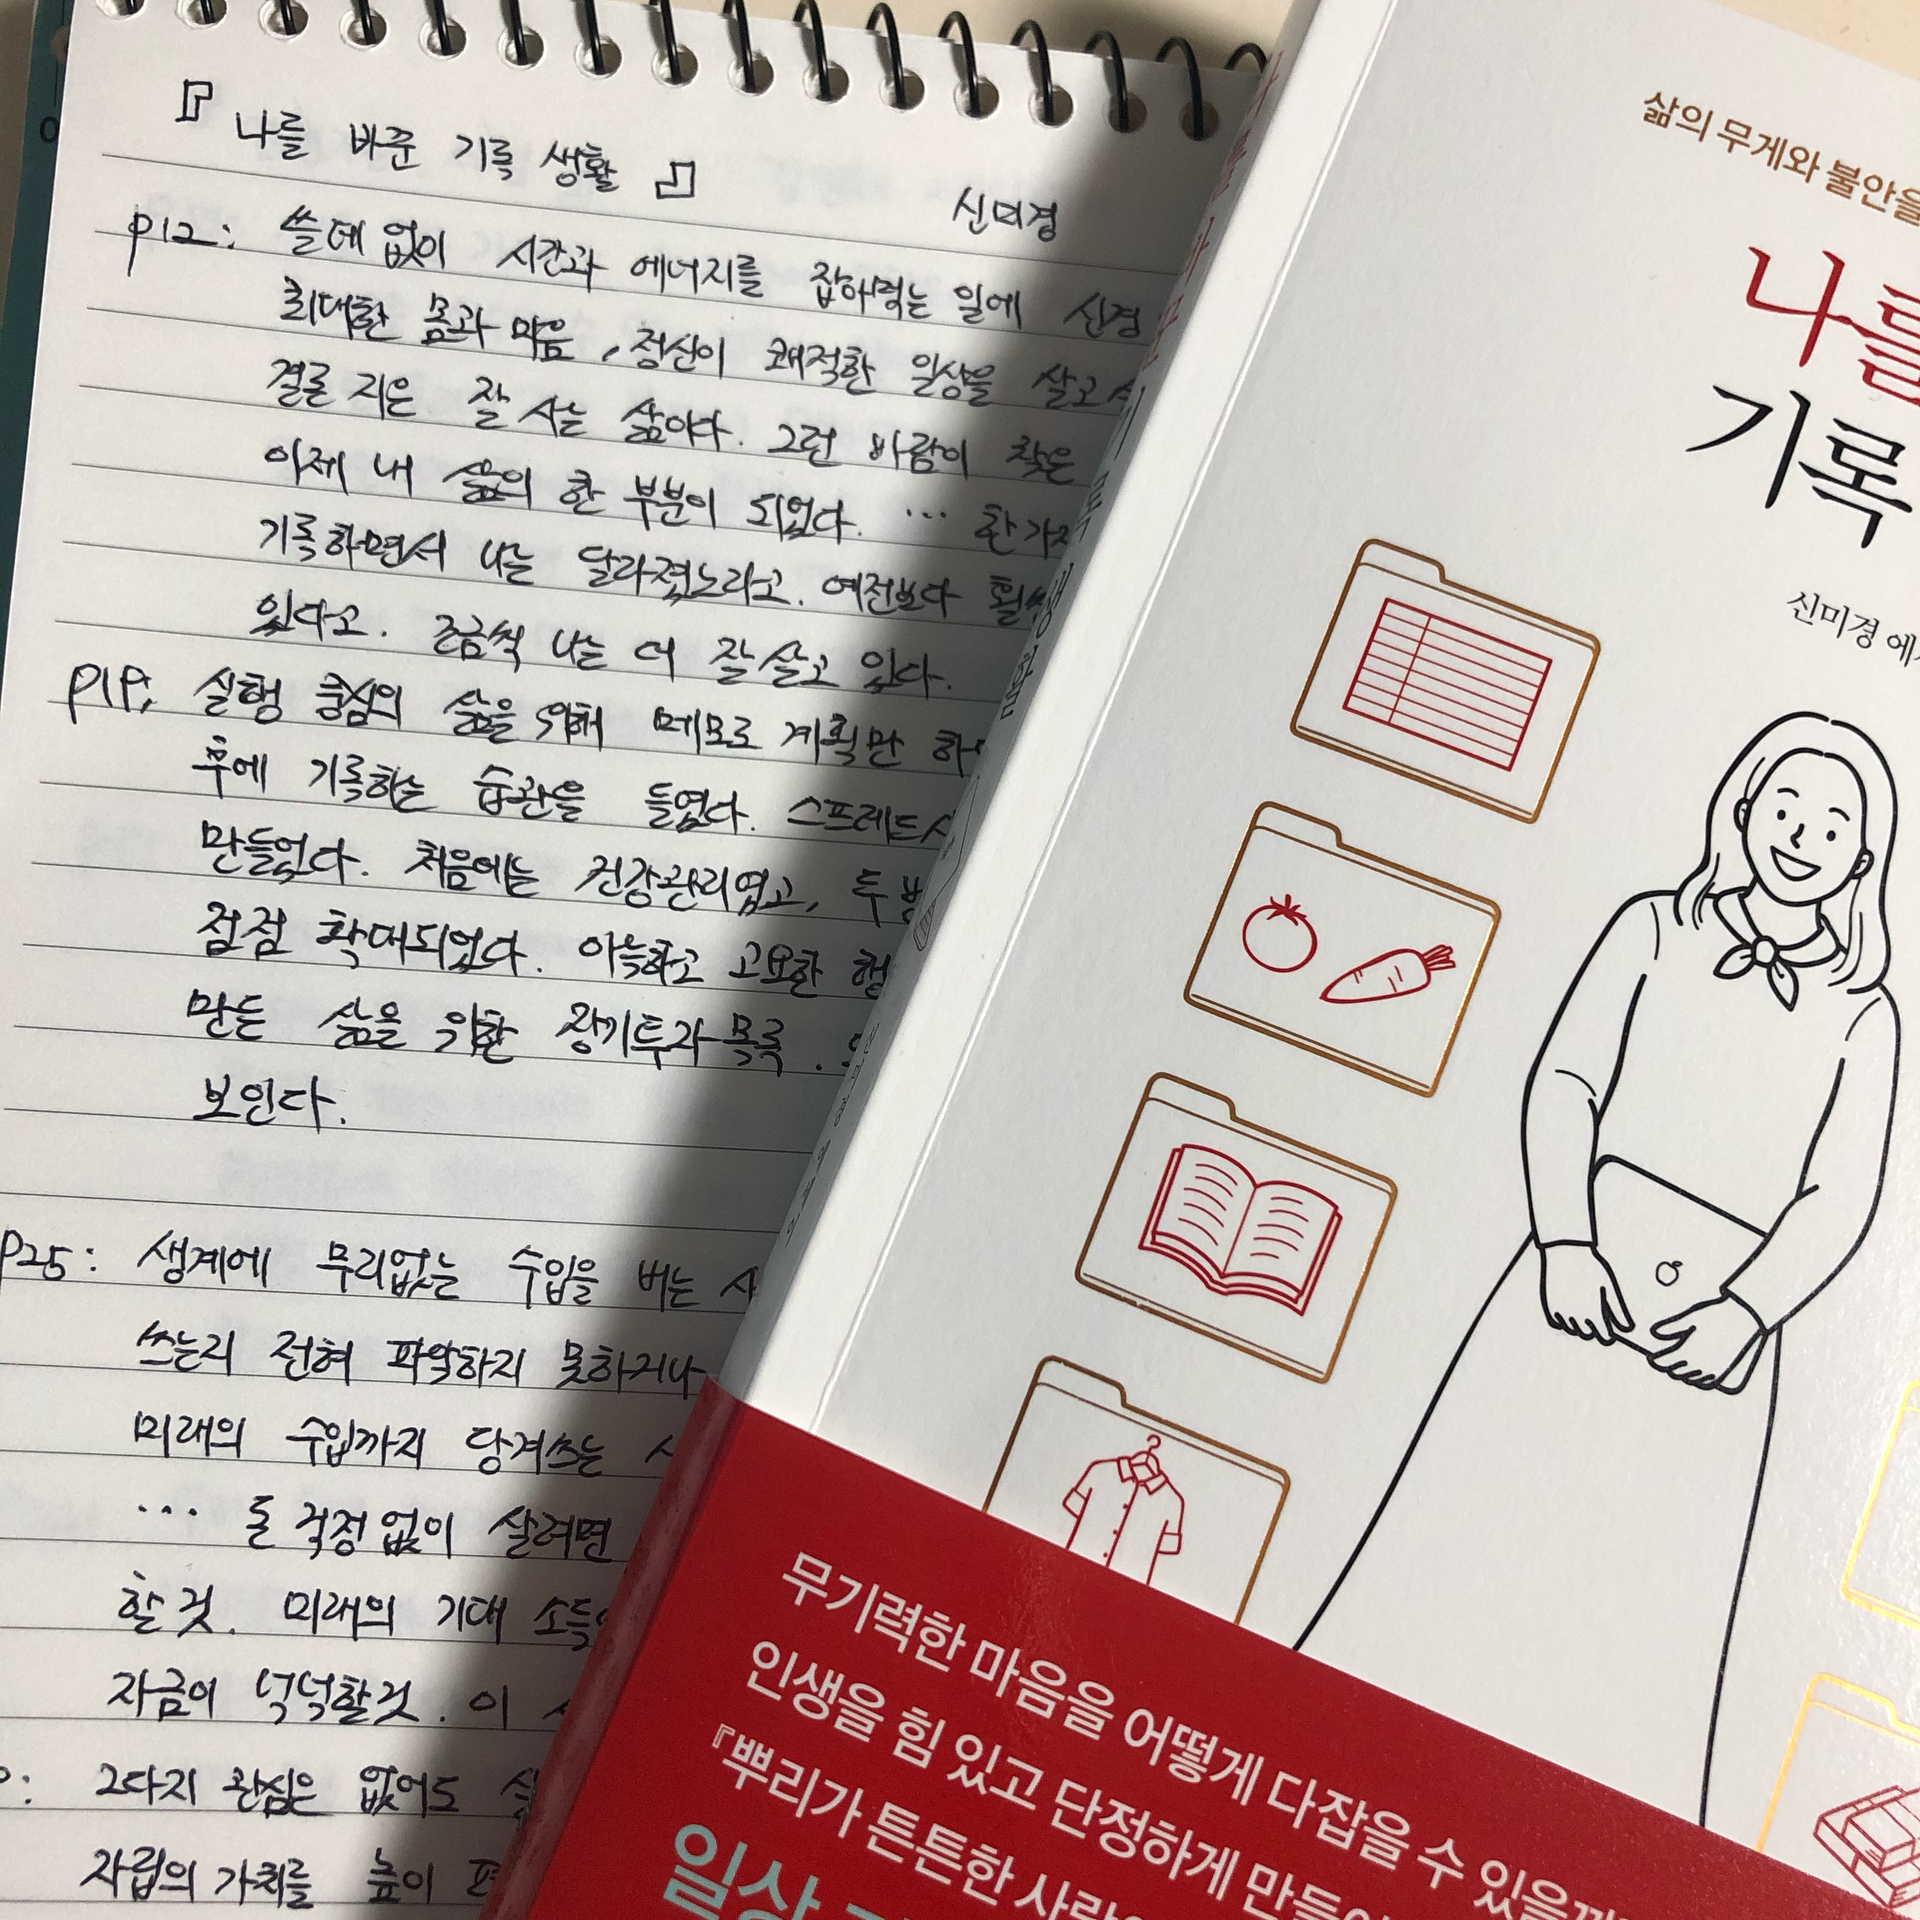 『 나를 바꾼 기록 생활 』
신미경
p12: 쓸데없이 시간과 에너지를 잡아먹는 일에 신경
최대한 몸과 마음, 정신이 쾌적한 일상을 살고
결론 지은 잘 사는 삶이다. 그런 바람이 작은
이제 내 삶의 한 부분이 되었다. … 한 가지
기록하면서 나는 달라졌노라고. 예전보다 훨씬
있다고. 조금씩 나는 더 잘 살고 있다.
p19; 실행 중심의 삶을 위해 메모로 계획만 하
후에 기록하는 습관을 들였다. 스프레드
만들었다. 처음에는 건강관리였고, 두 번
점점 확대되었다. 아늑하고 고요한
만든 삶을 위한 장기투자 목록.
보인다.
p25: 생계에 무리없는 수입을 버는 사
쓰는지 전혀 파악하지 못하거나
미래의 수입까지 당겨쓰는
… 돈 걱정없이 살려면
할 것. 미래의 기대 소득
자금이 넉넉할것. 이
: 그다지 관심은 없어도
자립의 가치를 높이
삶의 무게와 불안을
나를
기록
신미경 에
무기력한 마음을 어떻게 다잡을 수 있을까
인생을 힘 있고 단정하게 만들어
『뿌리가 튼튼한 사람
일상